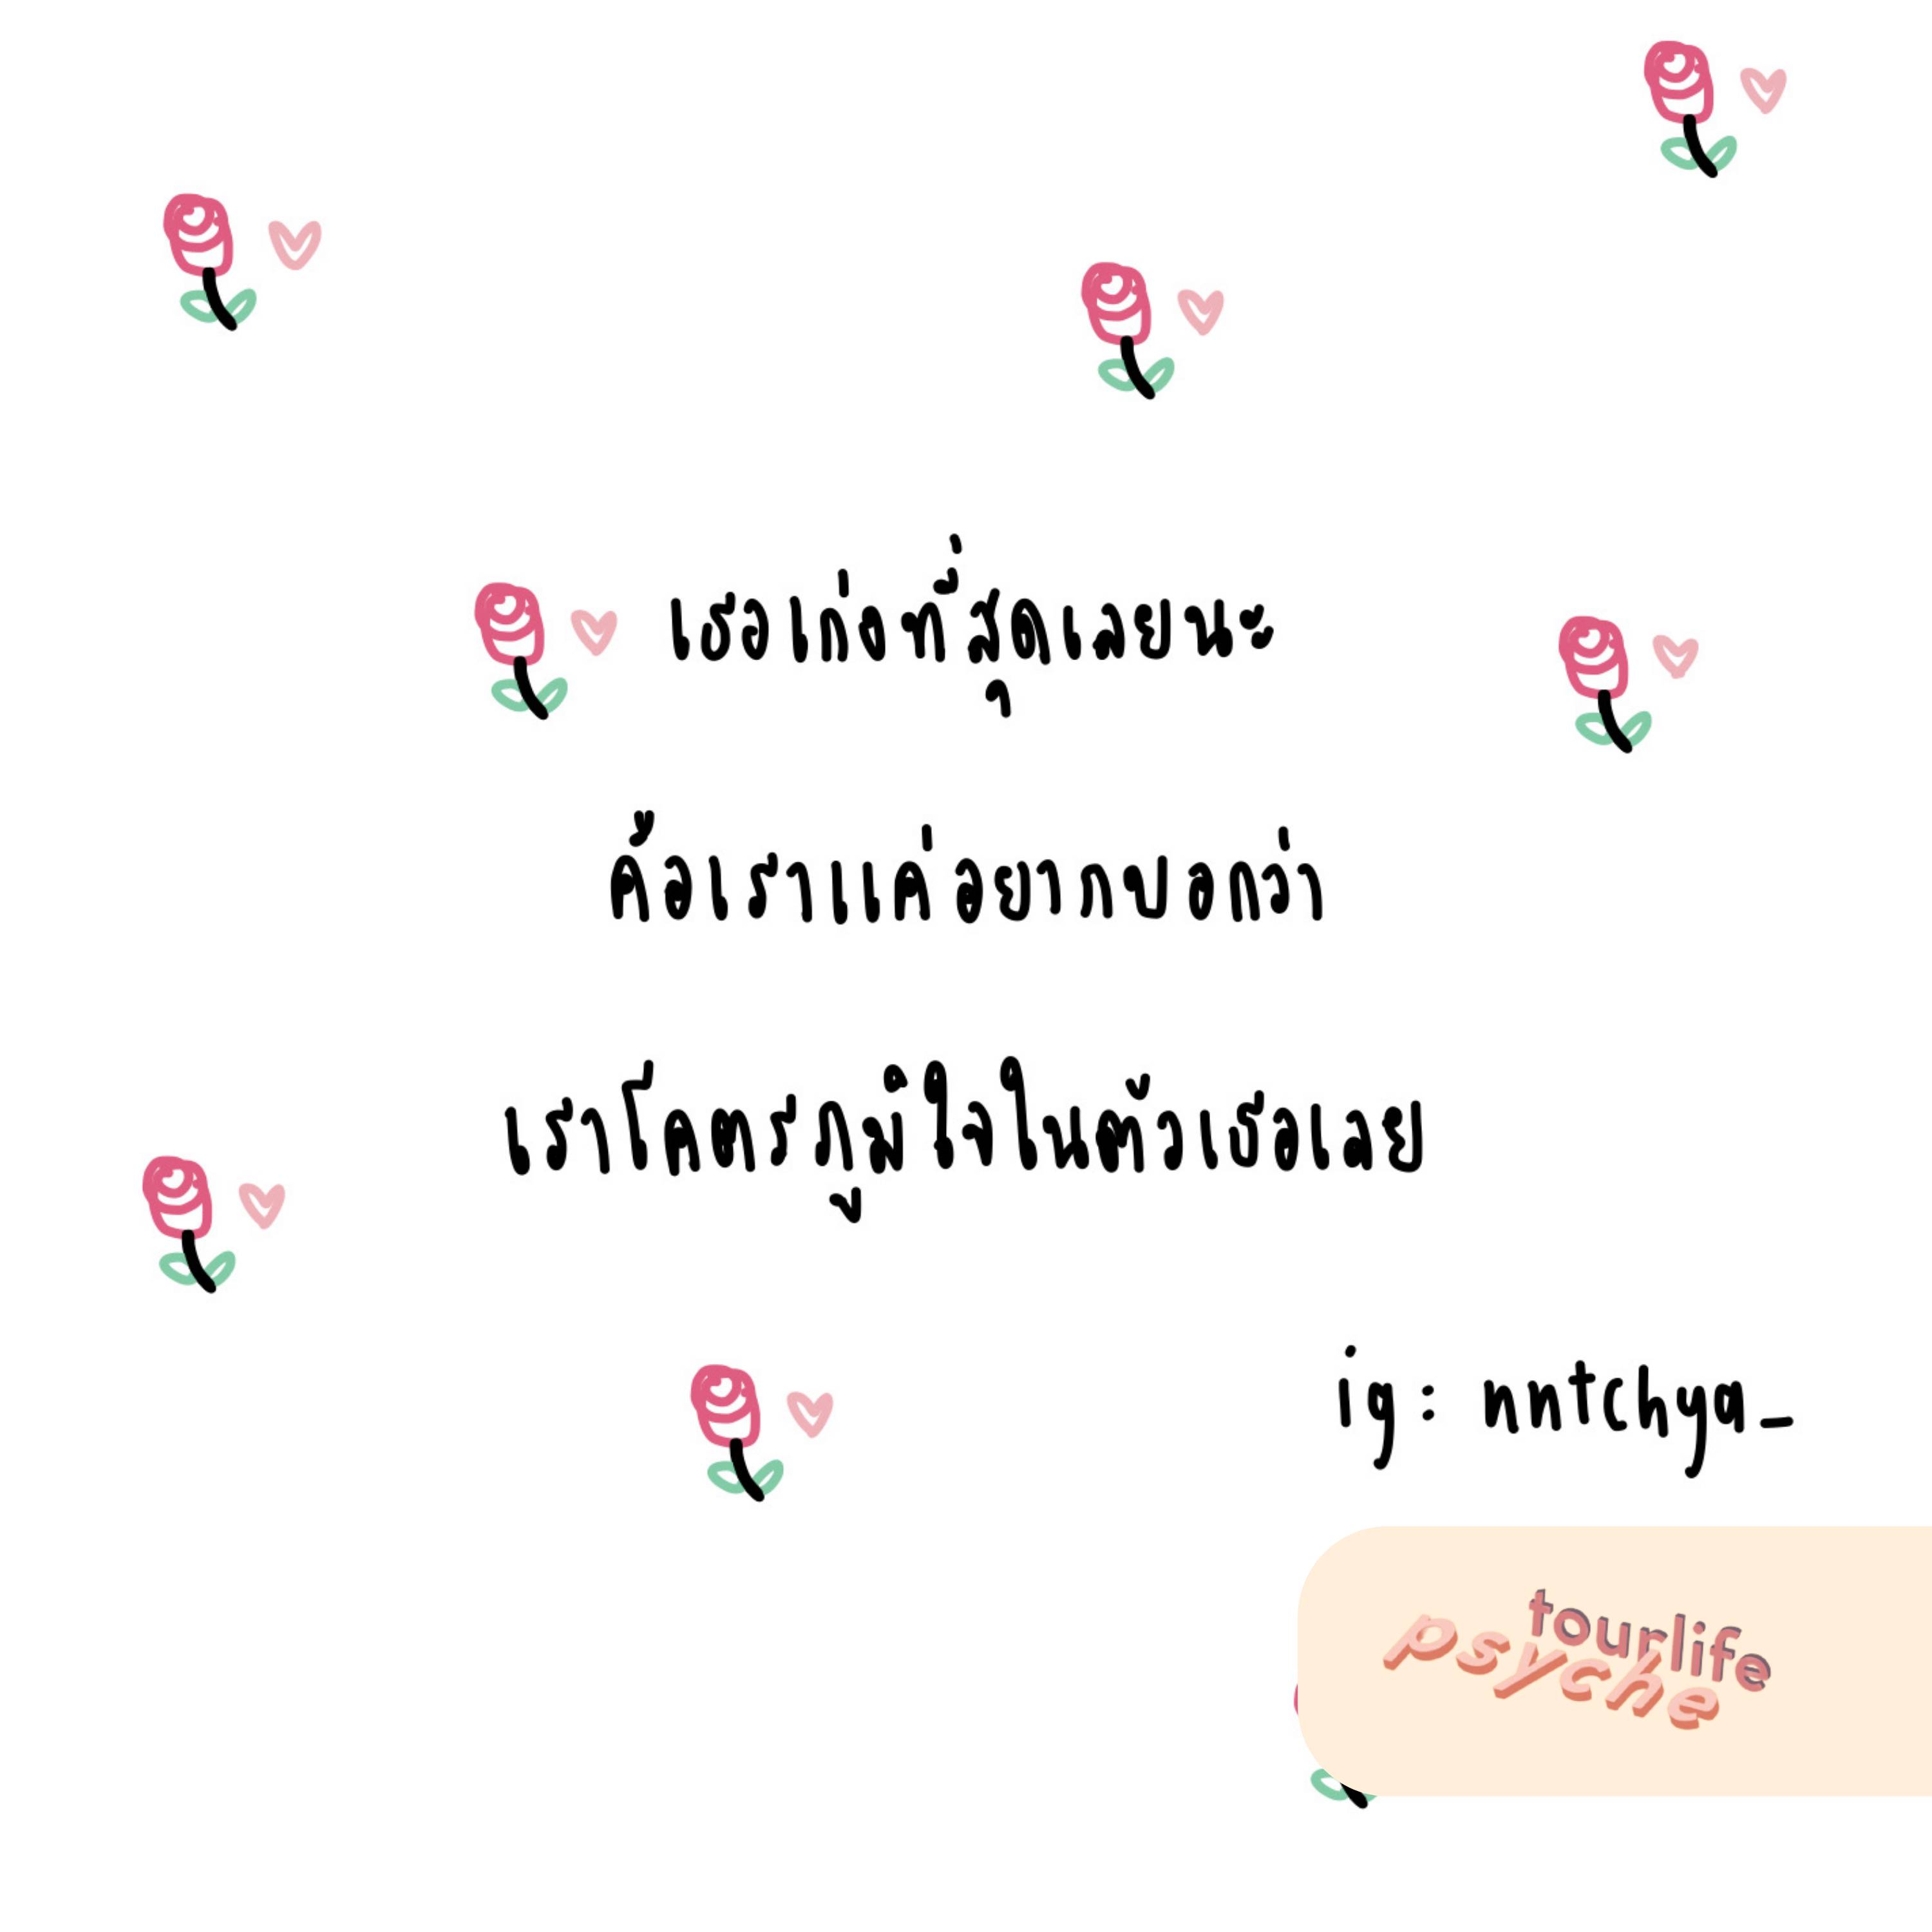 เธอเก่งที่สุดเลยนะ
คือเราแค่อยากบอกว่า
เราโคตรภูมิใจในตัวเธอเลย
ig: nntchya_
tourlife
psyche